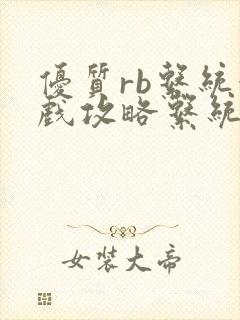 優質rb繫統
戲攻略繫統
女裝大帝